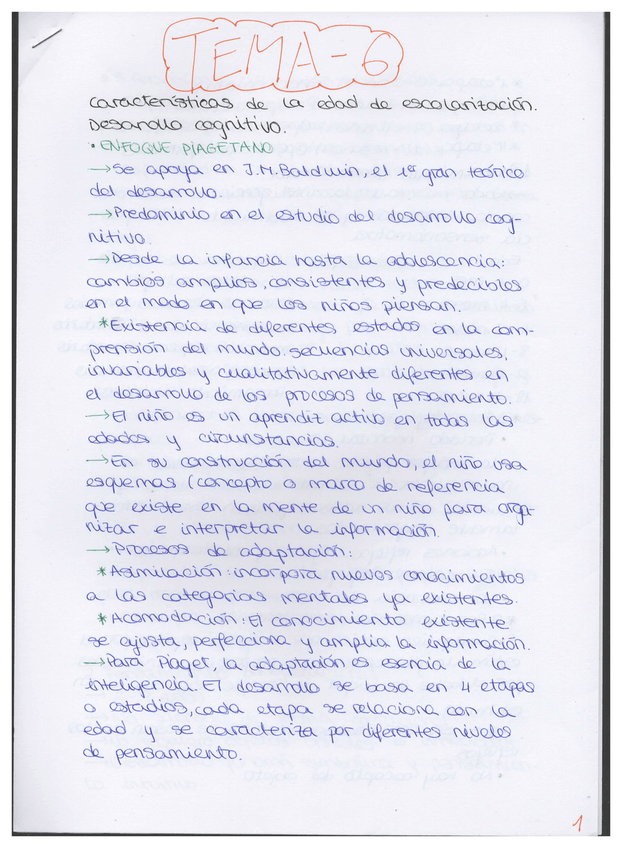 TEMA-6
Características de la edad de escolarización.
Desarrollo cognitivo.
• ENFOQUE PIAGETANO
→Se apoya en J.M.Baldwin, el 1er gran teórico
del desarrollo.
→Predominio en el estudio del desarrollo cog-
nitivo.
→Desde la infancia hasta la adolescencia:
cambios amplios, consistentes y predecibles
en el modo en que los niños piensan.
*Existencia de diferentes estados en la com-
prensión del mundo: secuencias universales,
invariables y cualitativamente diferentes en
el desarrollo de los procesos de pensamiento.
→El niño es un aprendiz activo en todas las
edades y circunstancias.
→En su construcción del mundo, el niño usa
esquemas (concepto o marco de referencia
que existe en la mente de un niño para orga-
nizar e interpretar la información.
→Procesos de adaptación:
*Asimilación: incorpora nuevos conocimientos
a las categorías mentales ya existentes.
*Acomodación: El conocimiento existente
se ajusta, perfecciona y amplia la información.
→Para Piaget, la adaptación es esencia de la
inteligencia. El desarrollo se basa en 4 etapas
o estadios, cada etapa se relaciona con la
edad y se caracteriza por diferentes niveles
de pensamiento.
1